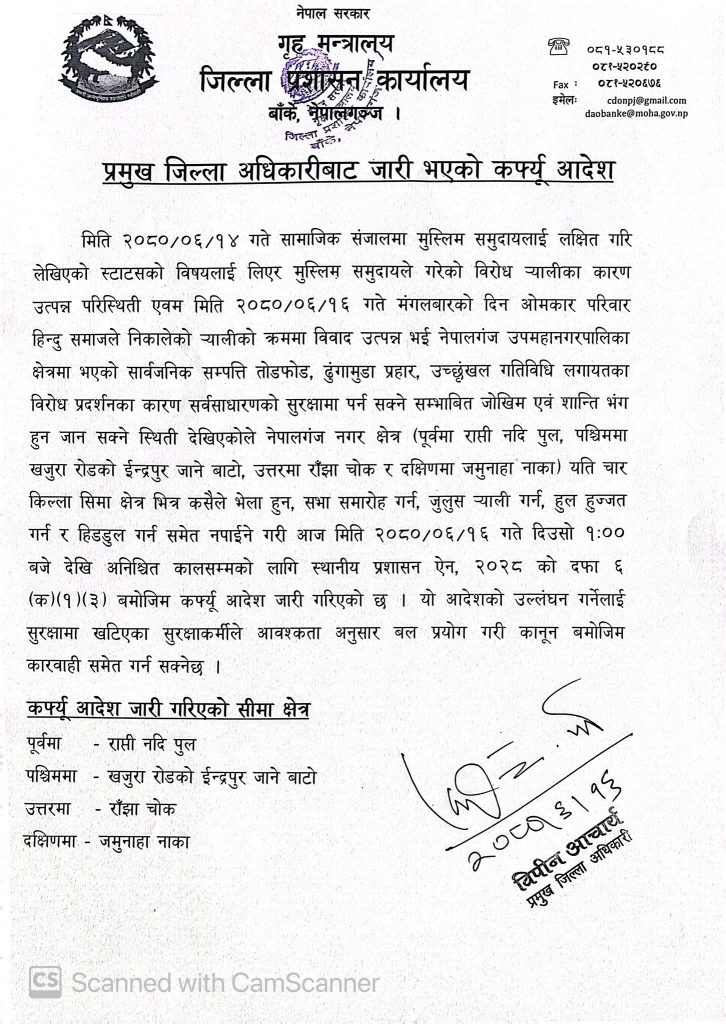 नेपाल सरकार
गृह मन्त्रालय
जिल्ला प्रशासन कार्यालय
बाँके, नेपालगञ्ज ।
०८१-५३०१८८
०८१-५२०२९०
Fax : ०८१-५२०६७६
इमेलः cdonpj@gmail.com
daobanke@moha.gov.np
प्रमुख जिल्ला अधिकारीबाट जारी भएको कर्फ्यू आदेश
मिति २०८०/०६/१४ गते सामाजिक संजालमा मुस्लिम समुदायलाई लक्षित गरि
लेखिएको स्टाटसको विषयलाई लिएर मुस्लिम समुदायले गरेको विरोध र्‍यालीका कारण
उत्पन्न परिस्थिती एवम मिति २०८०/०६/१६ गते मंगलबारको दिन ओमकार परिवार
हिन्दु समाजले निकालेको र्‍यालीको क्रममा विवाद उत्पन्न भई नेपालगंज उपमहानगरपालिका
क्षेत्रमा भएको सार्वजनिक सम्पत्ति तोडफोड, ढुंगामुडा प्रहार, उच्छृंखल गतिविधि लगायतका
विरोध प्रदर्शनका कारण सर्वसाधारणको सुरक्षामा पर्न सक्ने सम्भाबित जोखिम एवं शान्ति भंग
हुन जान सक्ने स्थिती देखिएकोले नेपालगंज नगर क्षेत्र (पूर्वमा राप्ती नदि पुल, पश्चिममा
खजुरा रोडको ईन्द्रपुर जाने बाटो, उत्तरमा राँझा चोक र दक्षिणमा जमुनाहा नाका) यति चार
किल्ला सिमा क्षेत्र भित्र कसैले भेला हुन, सभा समारोह गर्न, जुलुस र्‍याली गर्न, हुल हुज्जत
गर्न र हिडडुल गर्न समेत नपाईने गरी आज मिति २०८०/०६/१६ गते दिउसो १:००
बजे देखि अनिश्चित कालसम्मको लागि स्थानीय प्रशासन ऐन, २०२८ को दफा ६
(क)(१)(३) बमोजिम कर्फ्यू आदेश जारी गरिएको छ । यो आदेशको उल्लंघन गर्नेलाई
सुरक्षामा खटिएका सुरक्षाकर्मीले आवश्कता अनुसार बल प्रयोग गरी कानून बमोजिम
कारवाही समेत गर्न सक्नेछ ।
कर्फ्यू आदेश जारी गरिएको सीमा क्षेत्र
पूर्वमा - राप्ती नदि पुल
पश्चिममा - खजुरा रोडको ईन्द्रपुर जाने बाटो
उत्तरमा - राँझा चोक
दक्षिणमा - जमुनाहा नाका
विपीन आचार्य
प्रमुख जिल्ला अधिकारी
CS Scanned with CamScanner